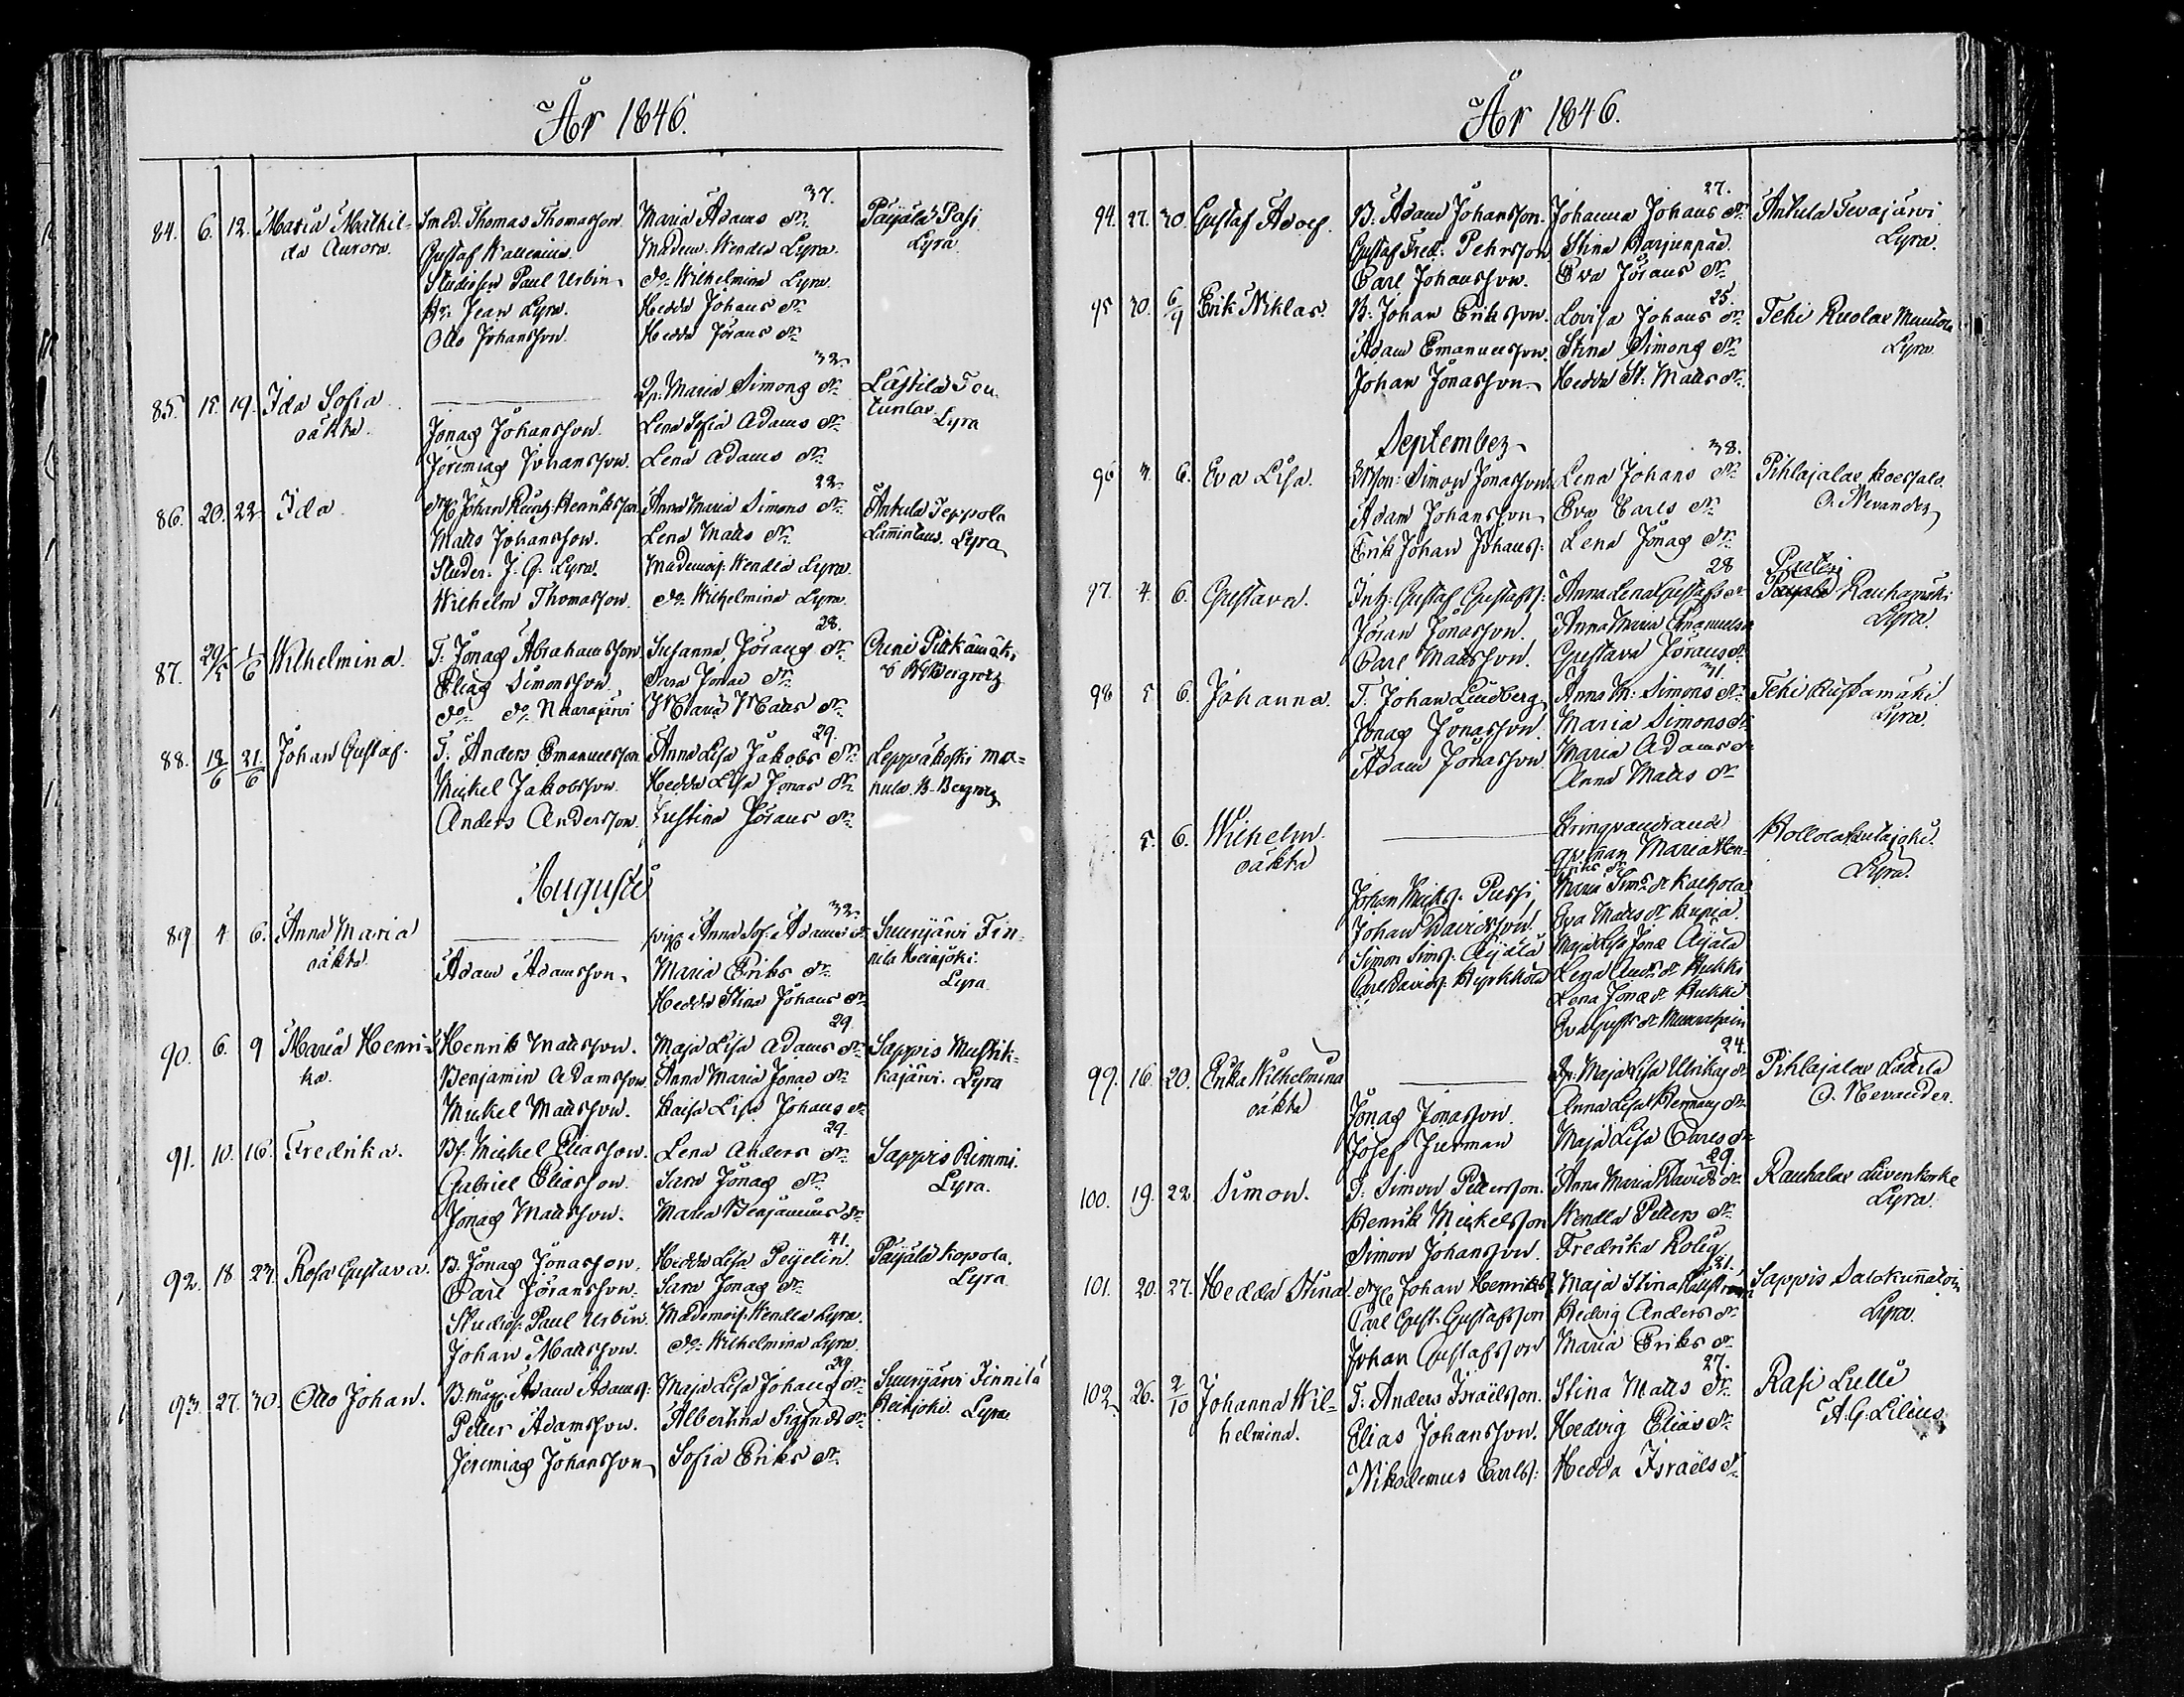 År 1846.
84. 6. 12. Maria Mathil- Smed. Thomas Thomasson Maria Adams dr. 37. Päijälä Pasi
da Aurora. Gustaf Wallenius. Madem. Wendla Lyra. Lyra
Studiosen Paul Urbin do. Wilhelmina Lyra
Hr. Jean Lyra. Hedda Johans dr.
Otto Johansson Hedda Jörans dr.
85. 15. 19. Ida Sofia Maria Simons dr. 32. Lästilä
oäkta. Jonas Johansson. Lena Sofia Adams dr. Lyra
Jeremias Johansson. Lena Adams dr.
86. 20. 22. Ida Johan Henriksson Anna Maria Simons dr. 22. Ankula Teppola
Matts Johansson. Lena Matts dr. Lyra
Studer. J. G. Lyra. Mademois. Wendla Lyra.
Wilhelm Thomasson. do. Wilhelmina Lyra.
87. 29/5 1/6 Wilhelmina. T. Jonas Abrahamsson Susanna Jörans dr. 28. Pitkämäki
Elias Simonsson. Sara Jonas dr. Bergroth
do. do. Naarajärvi Maria Matts dr.
88. 18/6 21/6 Johan Gustaf. T. Anders Emanuelsson Anna Lisa Jakobs dr. 29. Leppäkoski Ma-
Mickel Jakobsson. Hedda Lisa Jonas dr. nula. B. Bergroth
Anders Andersson. Justina Jörans dr.
Augusti
89 4. 6. Anna Maria pig. Anna Sof. Adams dr. 32. Suinjärvi Fin-
oäkta. Adam Adamsson Maria Eriks dr. nilä Heinjoki.
Hedda Stina Johans dr. Lyra
90. 6. 9 Maria Henri- Henrik Mattsson. Maja Lisa Adams dr. 29 Sappis Mustik-
ka. Benjamin Adamsson Anna Maria Jonas dr. kajärvi. Lyra
Mickel Mattsson. Kaisa Lisa Johans dr.
91. 10. 16. Fredrika. Mickel Eliasson. Lena Anders dr. 29. Sappis Rimmi.
Gabriel Eliasson. Sara Jonas dr. Lyra.
Jonas Mattsson. Maria Benjamins dr.
92. 18. 23. Rosa Gustava. B. Jonas Jonasson. Hedda Lisa Peijelin. 41. Päijälä Kopola.
Carl Jöransson. Sara Jonas dr. Lyra
Studios. Paul Urbin. Mademois. Wendla Lyra.
Johan Mattsson. do. Wilhelmina Lyra.
93. 27. 30. Otto Johan. B. måg Adam Adams. Maja Lisa Johans dr. 29. Suinjärvi Finnilä
Petter Adamsson. Albertina Sigfrids dr. Heinjoki. Lyra
Jeremias Johansson Sofia Eriks dr.
År 1846.
94. 27. 30. Gustaf Adolf. B. Adam Johansson. Johanna Johans dr. 27. Ankula Tevajärvi
Gustaf Fred. Pehrsson Stina Lyra.
Carl Johansson. Eva Jörans dr.
95 30. 6/9 Erik Niklas. B. Johan Eriksson. Lovisa Johans dr. 25. Tehi Ruolax
Adam Emanuelsson. Stina Simons dr. Lyra
Johan Jonasson Hedda St. Matts dr.
September
96 3. 6. Eva Lisa. Bson. Simon Jonasson Lena Johans dr. 38. Pihlajalax
Adam Johansson Eva Carls dr. O. Nevander
Erik Johan Johans. Lena Jonas dr.
97. 4. 6. Gustava. Inh. Gustaf Gustafs. Anna Lena Gustafs dr. 28 Rauhamäki
Jöran Jonasson. Anna Maria Emanuels dr Lyra
Carl Mattsson. Gustava Jörans dr.
98 5 6. Johanna. T. Johan Lindberg Anna M. Simons dr. 31. Tehi
Jonas Jonasson Maria Simons dr. Lyra.
Adam Jonasson Maria Adams dr
Anna Matts dr
5. 6. Wilhelm Kringvandrande
oäkta qvinnan Maria Hen-
riks dr. Lyra.
Johan Pussi Maria Sims dr
Johan Davidsson. Eva Matts dr
Simon Sims. Äijälä Maja Lisa Jonas Äijälä
Carl Davids. Hyrkkölä dr Hukki
Lena Jonas dr Hukki
Eva Gustfs dr
99. 16. 20. Erika Wilhelmina Maja Lisa Ulrikas dr 24. Pihlajalax
oäkta Jonas Jonasson. Anna Lisa Hermans dr O. Nevander.
Josef Jurman Maja Lisa Carls dr
100. 19. 22. Simon. T. Simon Pettersson. Anna Maria Davids dr. 29 Rauhalax
Henrik Mickelsson Wendla Petters dr Lyra.
Simon Johansson. Fredrika Rolig
101. 20. 27. Hedda Stina Johan Henriks Maja Stina 31. Sappis
Carl Gust. Gustafsson Hedvig Anders dr Lyra.
Johan Gustafsson Maria Eriks dr
102. 26. 2/10 Johanna Wil- T. Anders Israëlsson. Stina Matts dr. 27. Rasi Lulli
helmina. Elias Johansson. Hedvig Elias dr A. G. Lilius
Nikodemus Carls. Hedda Israëls dr